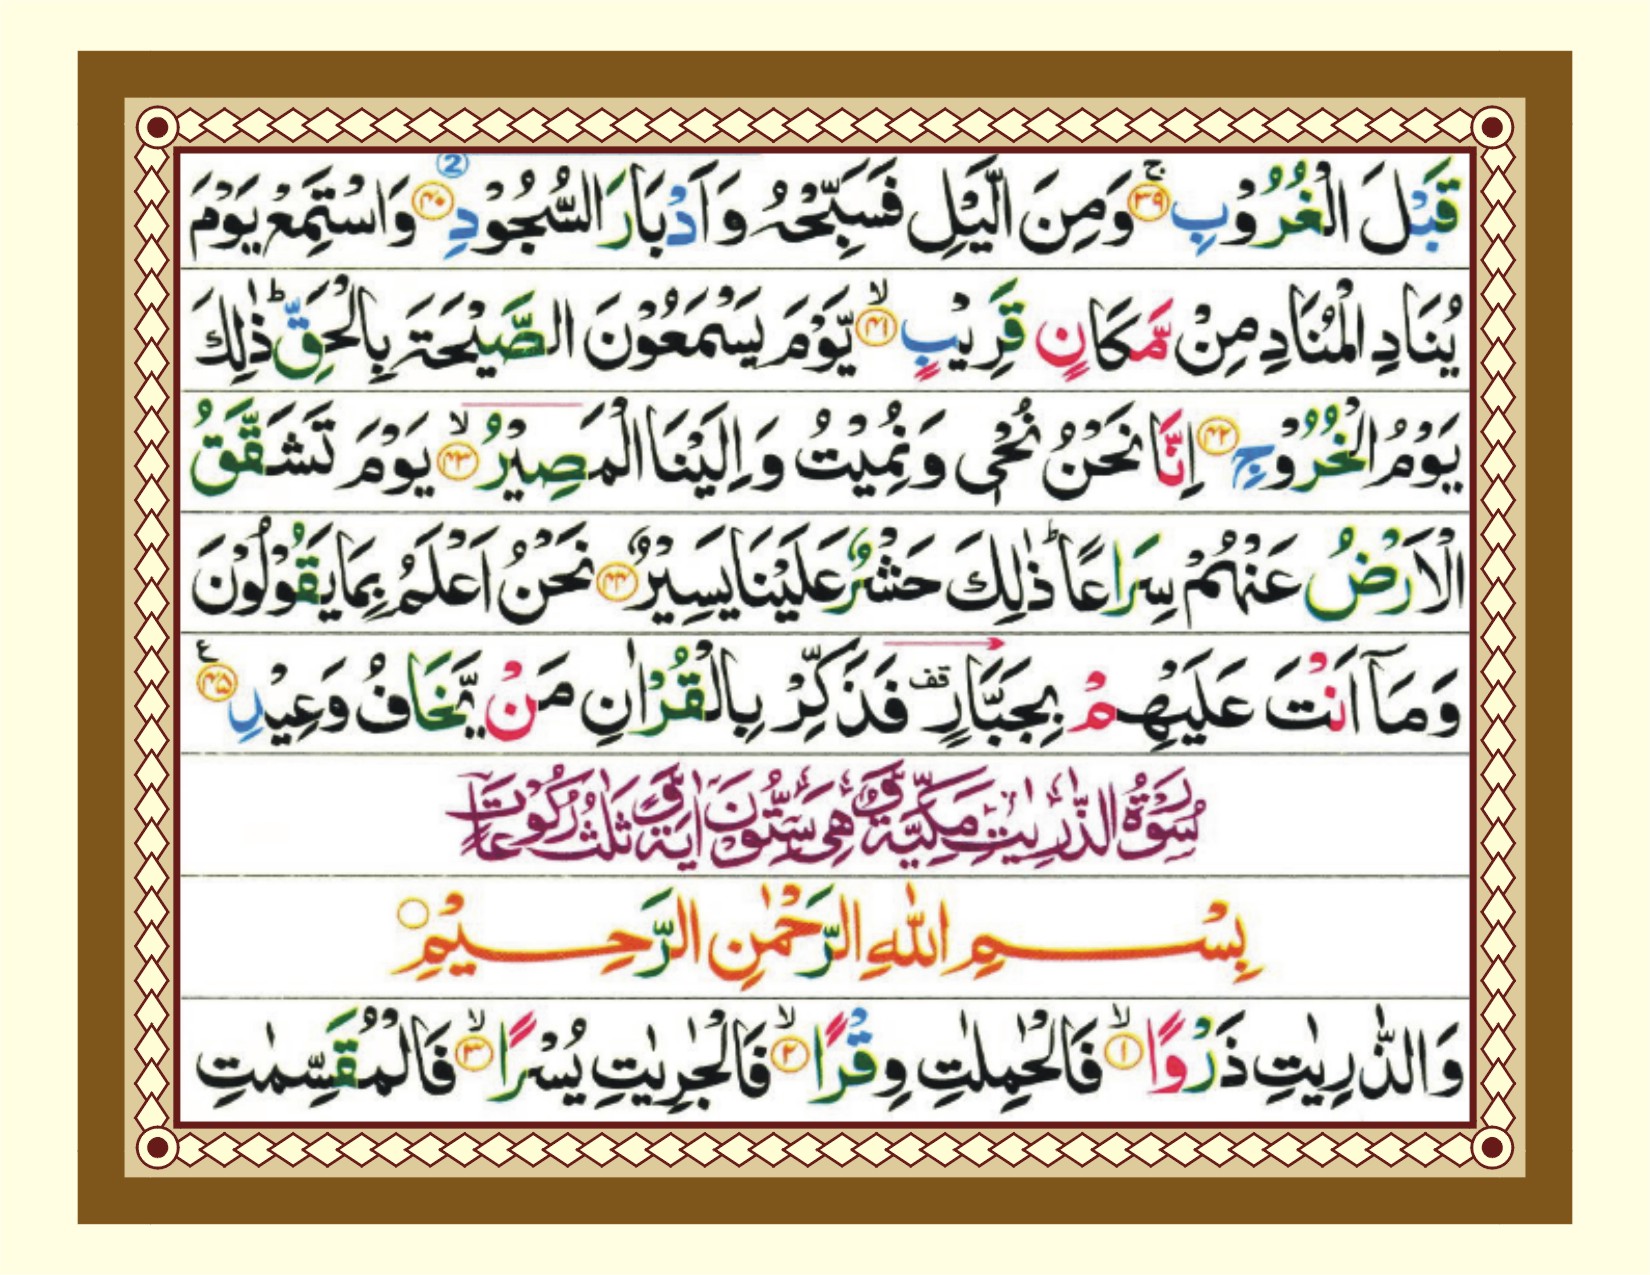 ②
قَبْلَ الْغُرُوْبِ ۚ﴿۳۹﴾ وَمِنَ الَّيْلِ فَسَبِّحْهُ وَاَدْبَارَ السُّجُوْدِ ﴿۴۰﴾ وَاسْتَمِعْ يَوْمَ
يُنَادِ الْمُنَادِ مِنْ مَّكَانٍ قَرِيْبٍ ۙ﴿۴۱﴾ يَّوْمَ يَسْمَعُوْنَ الصَّيْحَةَ بِالْحَقِّ ؕ ذٰلِكَ
يَوْمُ الْخُرُوْجِ ﴿۴۲﴾ اِنَّا نَحْنُ نُحْيٖ وَنُمِيْتُ وَاِلَيْنَا الْمَصِيْرُ ۙ﴿۴۳﴾ يَوْمَ تَشَقَّقُ
الْاَرْضُ عَنْهُمْ سِرَاعًا ؕ ذٰلِكَ حَشْرٌ عَلَيْنَا يَسِيْرٌ ﴿۴۴﴾ نَحْنُ اَعْلَمُ بِمَا يَقُوْلُوْنَ
وَمَآ اَنْتَ عَلَيْهِمْ بِجَبَّارٍ قف فَذَكِّرْ بِالْقُرْاٰنِ مَنْ يَّخَافُ وَعِيْدِ ﴿۴۵﴾ ع
سُوْرَةُ الذّٰرِيٰتِ مَكِّيَّةٌ وَّهِيَ سِتُّوْنَ اٰيَةً وَّثَلٰثُ رُكُوْعَاتٍ
بِسْمِ اللّٰهِ الرَّحْمٰنِ الرَّحِيْمِ ○
وَالذّٰرِيٰتِ ذَرْوًا ۙ﴿۱﴾ فَالْحٰمِلٰتِ وِقْرًا ۙ﴿۲﴾ فَالْجٰرِيٰتِ يُسْرًا ۙ﴿۳﴾ فَالْمُقَسِّمٰتِ